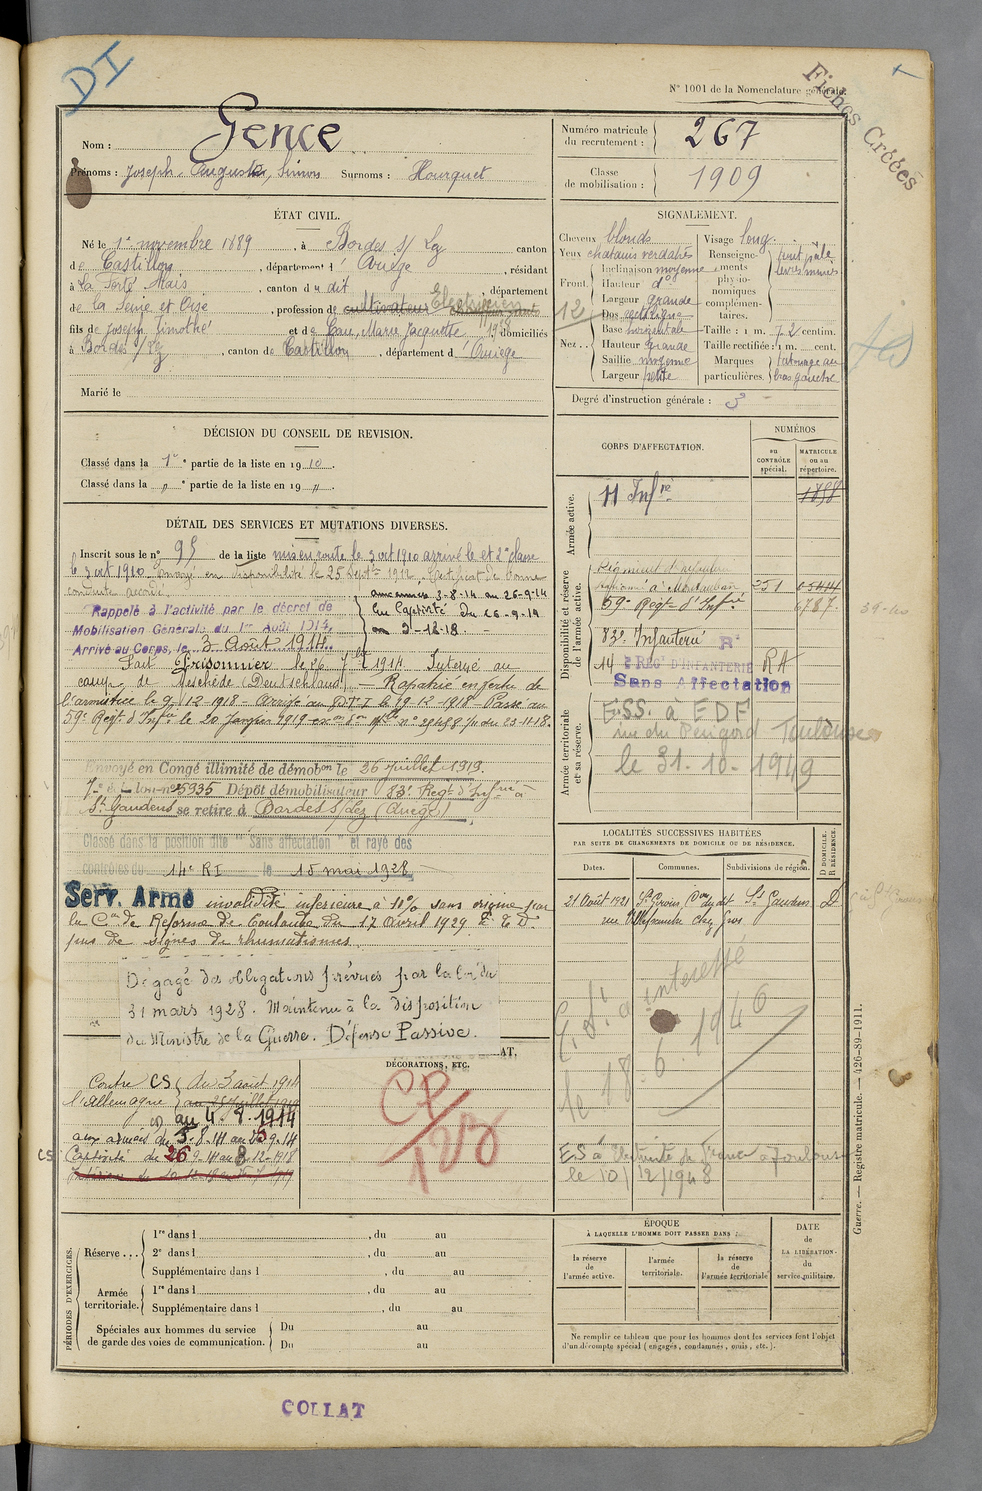 DI
N° 1001 de la Nomenclature générale.
Fiches Créées
Nom : Gence
Prénoms : Joseph Augustin, Simon Surnoms : Hourquet
Numéro matricule du recrutement : 267
Classe de mobilisation : 1909
ÉTAT CIVIL.
Né le 1er novembre 1889, à Bordes s/ Lez canton
de Castillon, département d'Ariège, résidant
à La Ferté Alais, canton du dit, département
de la Seine et Oise, profession de cultivateur Electricien
fils de Joseph Timothé et de Cau, Marie Jacquette domiciliés
à Bordes s/ Lez, canton de Castillon, département d'Ariège
Marié le
SIGNALEMENT.
Cheveux blonds
Yeux chatains verdatres
Front. Inclinaison moyenne
Hauteur do
Largeur grande
Nez Dos rectiligne
Base horizontale
Hauteur grande
Saillie moyenne
Largeur petite
12
Visage long
Renseignements physionomiques complémentaires.
teint pâle
lèvres minces
Taille : 1 m. 72 centim.
Taille rectifiée : 1 m. cent.
Marques particulières. tatouage au bras gauche
Degré d'instruction générale : 3
DÉCISION DU CONSEIL DE REVISION.
Classé dans la 1re partie de la liste en 1910.
Classé dans la " partie de la liste en 19 "
DÉTAIL DES SERVICES ET MUTATIONS DIVERSES.
Inscrit sous le n° 95 de la liste mis en route le 3 oct 1910 arrivé le et 2e classe
le 3 oct 1910 envoyé en disponibilité le 25 septbre 1912. Certificat de bonne
conduite accordé.
aux armées 3-8-14 au 26-9-14
En Captivité du 26-9-14
au 9-12-18.
Rappelé à l'activité par le décret de
Mobilisation Générale du 1er Août 1914.
Arrivé au Corps, le 3 Août 1914.
Fait Prisonnier le 26 7bre 1914 Interné au
camp de Meschède (Deutschland) — Rapatrié en vertu de
l'armistice le 9/12 1918 - Arrivé au D.T.I le 19-12-1918 - Passé au
59e Regt d'Infrie le 20 Janvier 1919
Envoyé en Congé illimité de démobon le 26 Juillet 1919.
Dépôt démobilisateur 83e Regt d'Infrie à
St Gaudens se retire à Bordes s/Lez (Ariège)
Classé dans la position dite "Sans affectation" et rayé des
contrôles du 14e RI le 15 mai 1928
Serv. Armé invalidité inférieure à 10% sans origine par
la Con de Réforme de Toulouse du 17 Avril 1929
pas de signes de rhumatismes.
Dégagé des obligations prévues par la loi du
31 mars 1928. Maintenu à la disposition
du Ministre de la Guerre. Défense Passive.
CORPS D'AFFECTATION.
NUMÉROS
au CONTRÔLE spécial.
MATRICULE ou au répertoire.
Armée active.
11 Infrie
1858
Disponibilité et réserve de l'armée active.
Régiment d'infanterie
stationné à Montauban 251
59e Regt d'Infrie 6787
83e Infanterie
14 E REG' D'INFANTERIE RA
Sans Affectation
39-40
Armée territoriale et sa réserve.
E.S.S. à EDF
rue du Périgord Toulouse
le 31-10-1949
LOCALITÉS SUCCESSIVES HABITÉES
PAR SUITE DE CHANGEMENTS DE DOMICILE OU DE RÉSIDENCE.
Dates. Communes. Subdivisions de région. D DOMICILE. R RÉSIDENCE.
21 Août 1921 St Girons, Con du dit St Gaudens D
le 18.6.1946
ES à Electricité de France à Toulouse
le 10/12/1948
DÉCORATIONS, ETC.
Contre CS du 3 août 1914
l'Allemagne au 25 Juillet 1919
au 4.8.1914
aux armées du 5-8-14 au 25-9-14
CS Captivité du 26 9-14 au 8-12-1918
PÉRIODES D'EXERCICES.
Réserve ... 1re dans l , du au
2e dans l , du au
Supplémentaire dans l , du au
Armée territoriale. 1re dans l , du au
Supplémentaire dans l , du au
Spéciales aux hommes du service de garde des voies de communication. Du au
Du au
ÉPOQUE
À LAQUELLE L'HOMME DOIT PASSER DANS :
la réserve de l'armée active.
l'armée territoriale.
la réserve de l'armée territoriale
DATE de LA LIBÉRATION du service militaire.
Ne remplir ce tableau que pour les hommes dont les services font l'objet
d'un décompte spécial (engagés, condamnés, omis, etc.).
Guerre. — Registre matricule. — 426-89-1911.
COLLAT